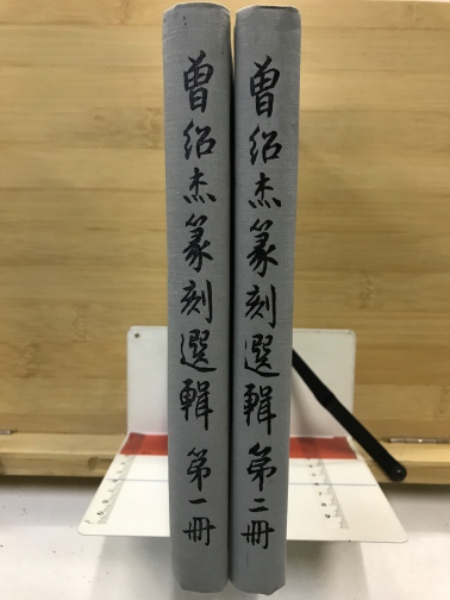 曾紹杰篆刻選輯 第一冊
曾紹杰篆刻選輯 第二冊